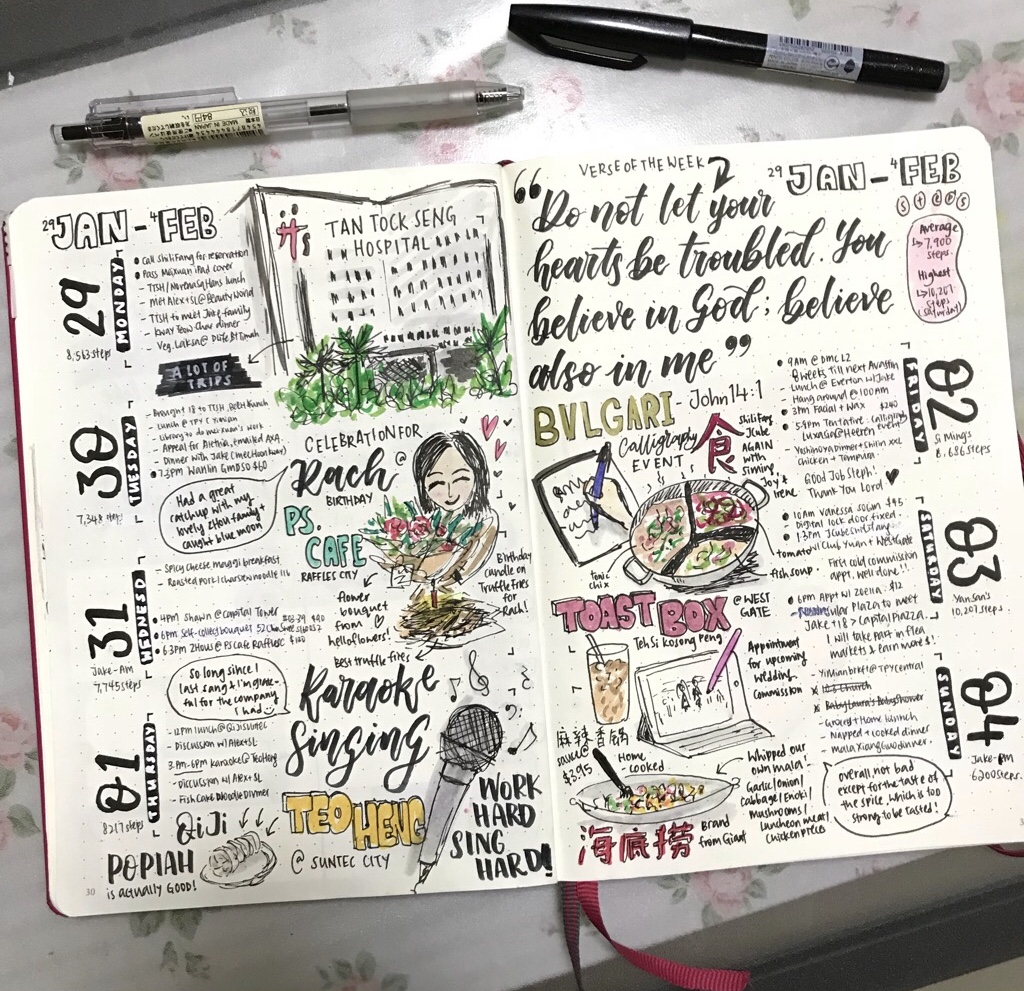 MADE IN JAPAN
84円
29 JAN - 4 FEB
29
MONDAY
8,563 steps
Call ShiLiFang for reservation
Pass Meixuan iPad cover
Met Alex+SL@BeautyWorld
TTSH to meet Jake family
Kway Teow Char dinner
Veg. Laksa@
A LOT OF
TRIPS
TAN TOCK SENG
HOSPITAL
30
TUESDAY
7,348 steps
Dinner with Jake
$60
Had a great
catchup with my
lovely Zhou family +
caught blue moon
CELEBRATION FOR
Rach @
BIRTHDAY
PS.
CAFE
RAFFLES CITY
flower
bouquet
from
helloflowers!
Birthday
candle on
Truffle fries
for
Rach!
Best truffle fries
31
WEDNESD
Jake-Am
7,745 steps
Spicy cheese maggi breakfast
4pm Shawn @ Capital Tower
6pm Self-collect bouquet
6.30pm 2 Hours @ PS Cafe Raffles C
So long since I
last sang + I'm grate-
ful for the company
I had
Karaoke
Singing
01
THURSDAY
8217 steps
12pm lunch @ QiJi Suntec
Discussion w/ Alex+SL
3pm-6pm karaoke@TeoHeng
Discussion w/ Alex+SL
Fishcake Noodle Dinner
QiJi
POPIAH
is actually GOOD!
TEO HENG
@ SUNTEC CITY
WORK
HARD
SING
HARD!
30
VERSE OF THE WEEK
29 JAN - 4 FEB
“Do not let your
hearts be troubled. You
believe in God; believe
also in me”
- John 14:1
steps
Average
7,900
steps.
Highest
10,207
steps
(Saturday)
BVLGARI
Calligraphy
EVENT
食
ShiLiFang
JCube
AGAIN
with
Siming
Joy +
Irene
tonic
chix
tomato
fish soup
02
FRIDAY
8,686 steps
9AM @ DMC L2
8 weeks till next Avastin
Lunch @ Everton w/ Jake
Hang around @ 100AM
3pm Facial + Wax $240
Yoshinoya Dinner + Shirin xxl
chicken + Tempura
Good Job Steph!
Thank You Lord
03
SATURDAY
10,207 steps
Digital lock door fixed
1.30pm JCube ShiLiFang
w/ Club Yuan + Westgate
First cold commission
appt. well done!!
6pm Appt w/ Zoe
Plaza to meet
Jake + 18 7 Capital Plaza
I will take part in flea
markets & earn more $!
TOAST BOX
@ WEST
GATE
Teh Si Kosong Peng
Appointment
for upcoming
wedding
commission
04
SUNDAY
Jake-Am
6200 steps
Yimian brkft @ TPY Central
10.5 Church
Baby Laura's Babyshower
Grocery + Home lunch
Napped + cooked dinner
mala Xiang Guo dinner
overall not bad
except for the taste of
the spice. Which is too
strong to be tasted!
麻辣香锅
sauce@
$3.95
Home
cooked
Whipped our
own mala!
Garlic/onion/
cabbage/enoki/
mushrooms/
luncheon meat/
chicken piece
海底捞
Brand
from Giant